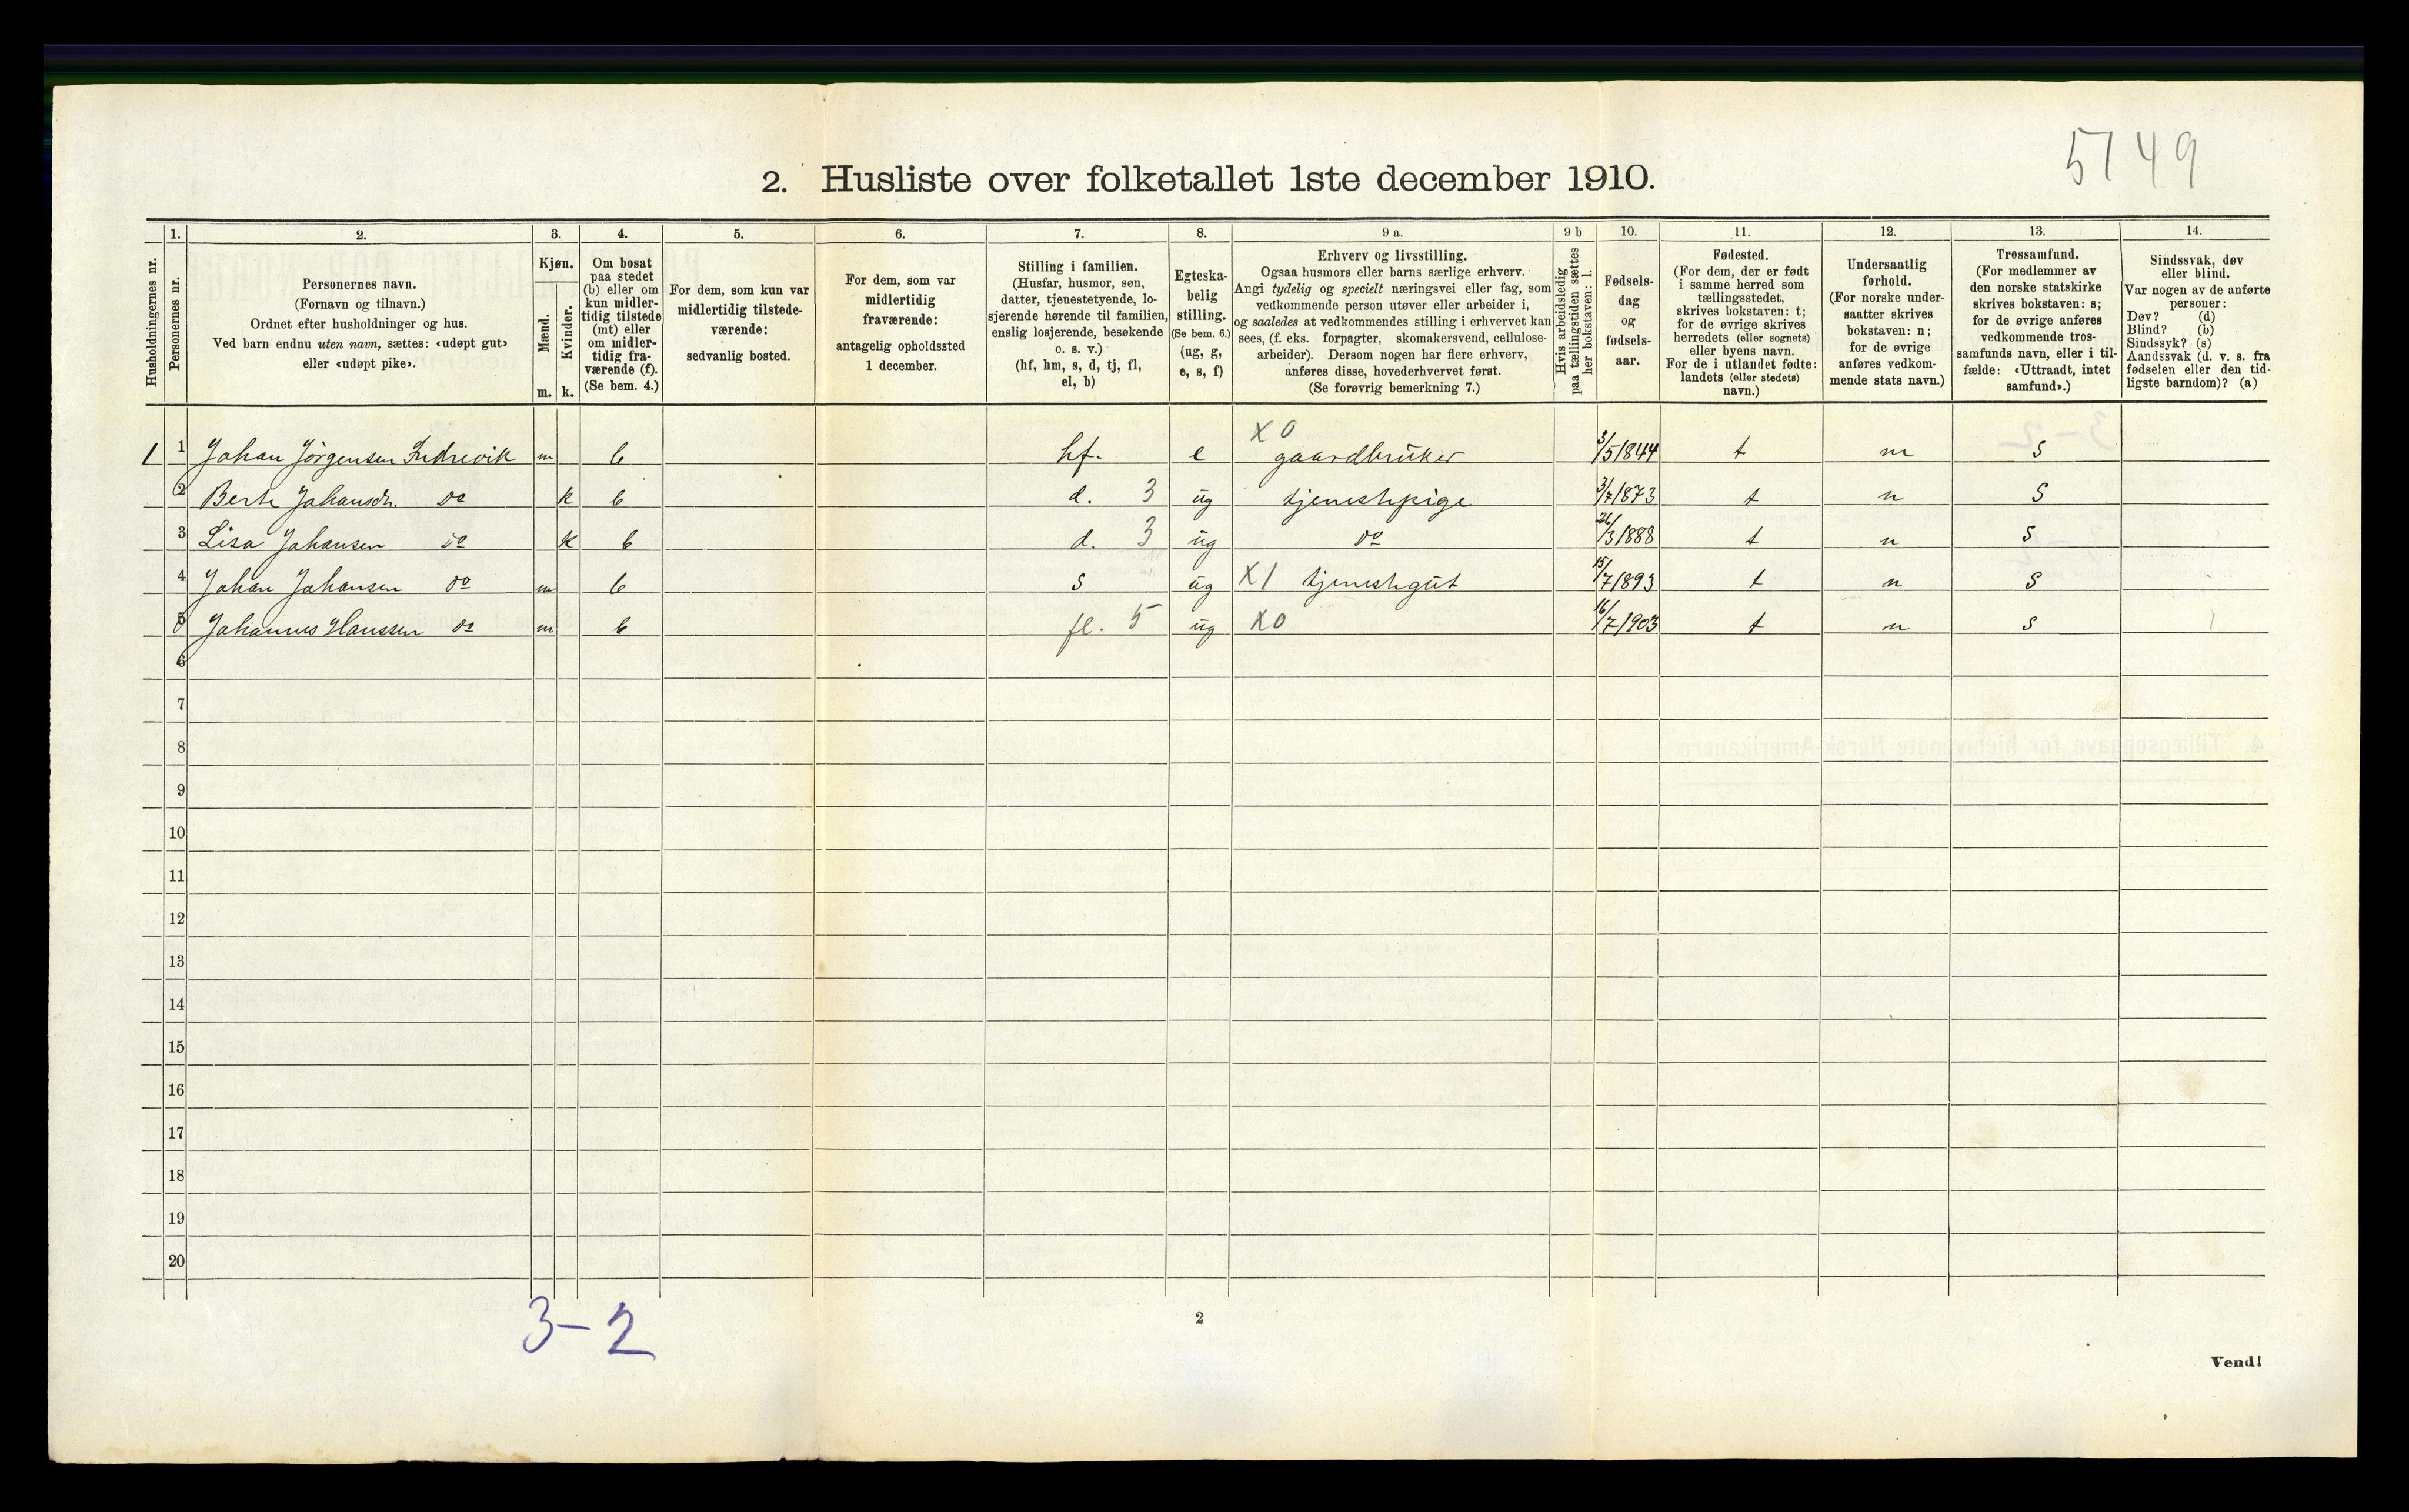 5749
2. Husliste over folketallet 1ste december 1910.
Husholdningernes nr.
1.
Personernes nr.
2.
Personernes navn.
(Fornavn og tilnavn.)
Ordnet efter husholdninger og hus.
Ved barn endnu uten navn, sættes: «udøpt gut»
eller «udøpt pike».
3.
Kjøn.
Mænd.
Kvinder.
m. k.
4.
Om bosat
paa stedet
(b) eller om
kun midler-
tidig tilstede
(mt) eller
om midler-
tidig fra-
værende (f).
(Se bem. 4.)
5.
For dem, som kun var
midlertidig tilstede-
værende:
sedvanlig bosted.
6.
For dem, som var
midlertidig
fraværende:
antagelig opholdssted
1 december.
7.
Stilling i familien.
(Husfar, husmor, søn,
datter, tjenestetyende, lo-
sjerende hørende til familien,
enslig losjerende, besøkende
o. s. v.)
(hf, hm, s, d, tj, fl,
el, b)
8.
Egteska-
belig
stilling.
(Se bem. 6.)
(ug, g,
e, s, f)
9 a.
Erhverv og livsstilling.
Ogsaa husmors eller barns særlige erhverv.
Angi tydelig og specielt næringsvei eller fag, som
vedkommende person utøver eller arbeider i,
og saaledes at vedkommendes stilling i erhvervet kan
sees, (f. eks. forpagter, skomakersvend, cellulose-
arbeider). Dersom nogen har flere erhverv,
anføres disse, hovederhvervet først.
(Se forøvrig bemerkning 7.)
9 b
Hvis arbeidsledig
paa tællingstiden sættes
her bokstaven: l.
10.
Fødsels-
dag
og
fødsels-
aar.
11.
Fødested.
(For dem, der er født
i samme herred som
tællingsstedet,
skrives bokstaven: t;
for de øvrige skrives
herredets (eller sognets)
eller byens navn.
For de i utlandet fødte:
landets (eller stedets)
navn.)
12.
Undersaatlig
forhold.
(For norske under-
saatter skrives
bokstaven: n;
for de øvrige
anføres vedkom-
mende stats navn.)
13.
Trossamfund.
(For medlemmer av
den norske statskirke
skrives bokstaven: s;
for de øvrige anføres
vedkommende tros-
samfunds navn, eller i til-
fælde: «Uttraadt, intet
samfund».)
14.
Sindssvak, døv
eller blind.
Var nogen av de anførte
personer:
Døv? (d)
Blind? (b)
Sindssyk? (s)
Aandssvak (d. v. s. fra
fødselen eller den tid-
ligste barndom)? (a)
1 1 Johan Jörgensen Indrevik m b hf. e X0 gaardbruker 3/5 1844 t n S
2 Berte Johansdr. do k b d. 3 ug tjenestpige 3/7 1873 t n S
3 Lisa Johansen do k b d. 3 ug do 26/3 1888 t n S
4 Johan Johansen do m b s ug X1 tjenestgut 15/7 1893 t n S
5 Johannes Hanssen do m b fl. 5 ug X0 16/7 1903 t n S
6
7
8
9
10
11
12
13
14
15
16
17
18
19
20
3-2
2
Vend!